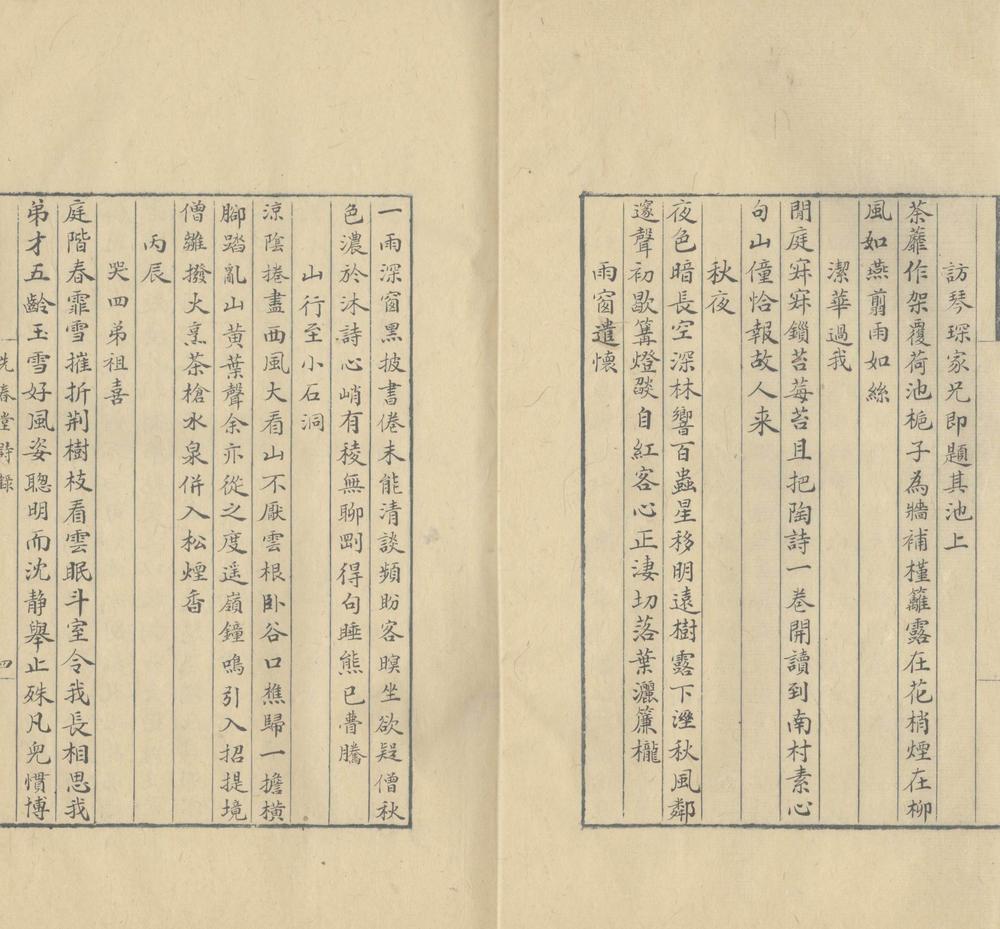 訪琴琛家兄即題其池上
荼蘼作架覆荷池梔子為牆補槿籬露在花梢煙在柳
風如燕翦雨如絲
潔華過我
閒庭寂寂鎖苔莓苔且把陶詩一卷開讀到南村素心
句山僮恰報故人来
秋夜
夜色暗長空深林響百蟲星移明遠樹露下溼秋風鄰
邃聲初歇篝燈燄自紅客心正淒切落葉灑簾櫳
雨窗遣懷
一雨深窗黑披書倦未能清談頻盼客暝坐欲疑僧秋
色濃於沐詩心峭有稜無聊剛得句睡熊已瞢騰
山行至小石洞
涼陰捲盡西風大看山不厭雲根卧谷口樵歸一擔橫
腳踏亂山黃葉聲余亦從之度遥嶺鐘鳴引入招提境
僧雛撥火烹茶槍水泉併入松煙香
丙辰
哭四弟祖喜
庭階春霏雪摧折荆樹枝看雲眠斗室令我長相思我
弟才五齡玉雪好風姿聰明而沈静舉止殊凡兒慣博
春堂詩錄 四